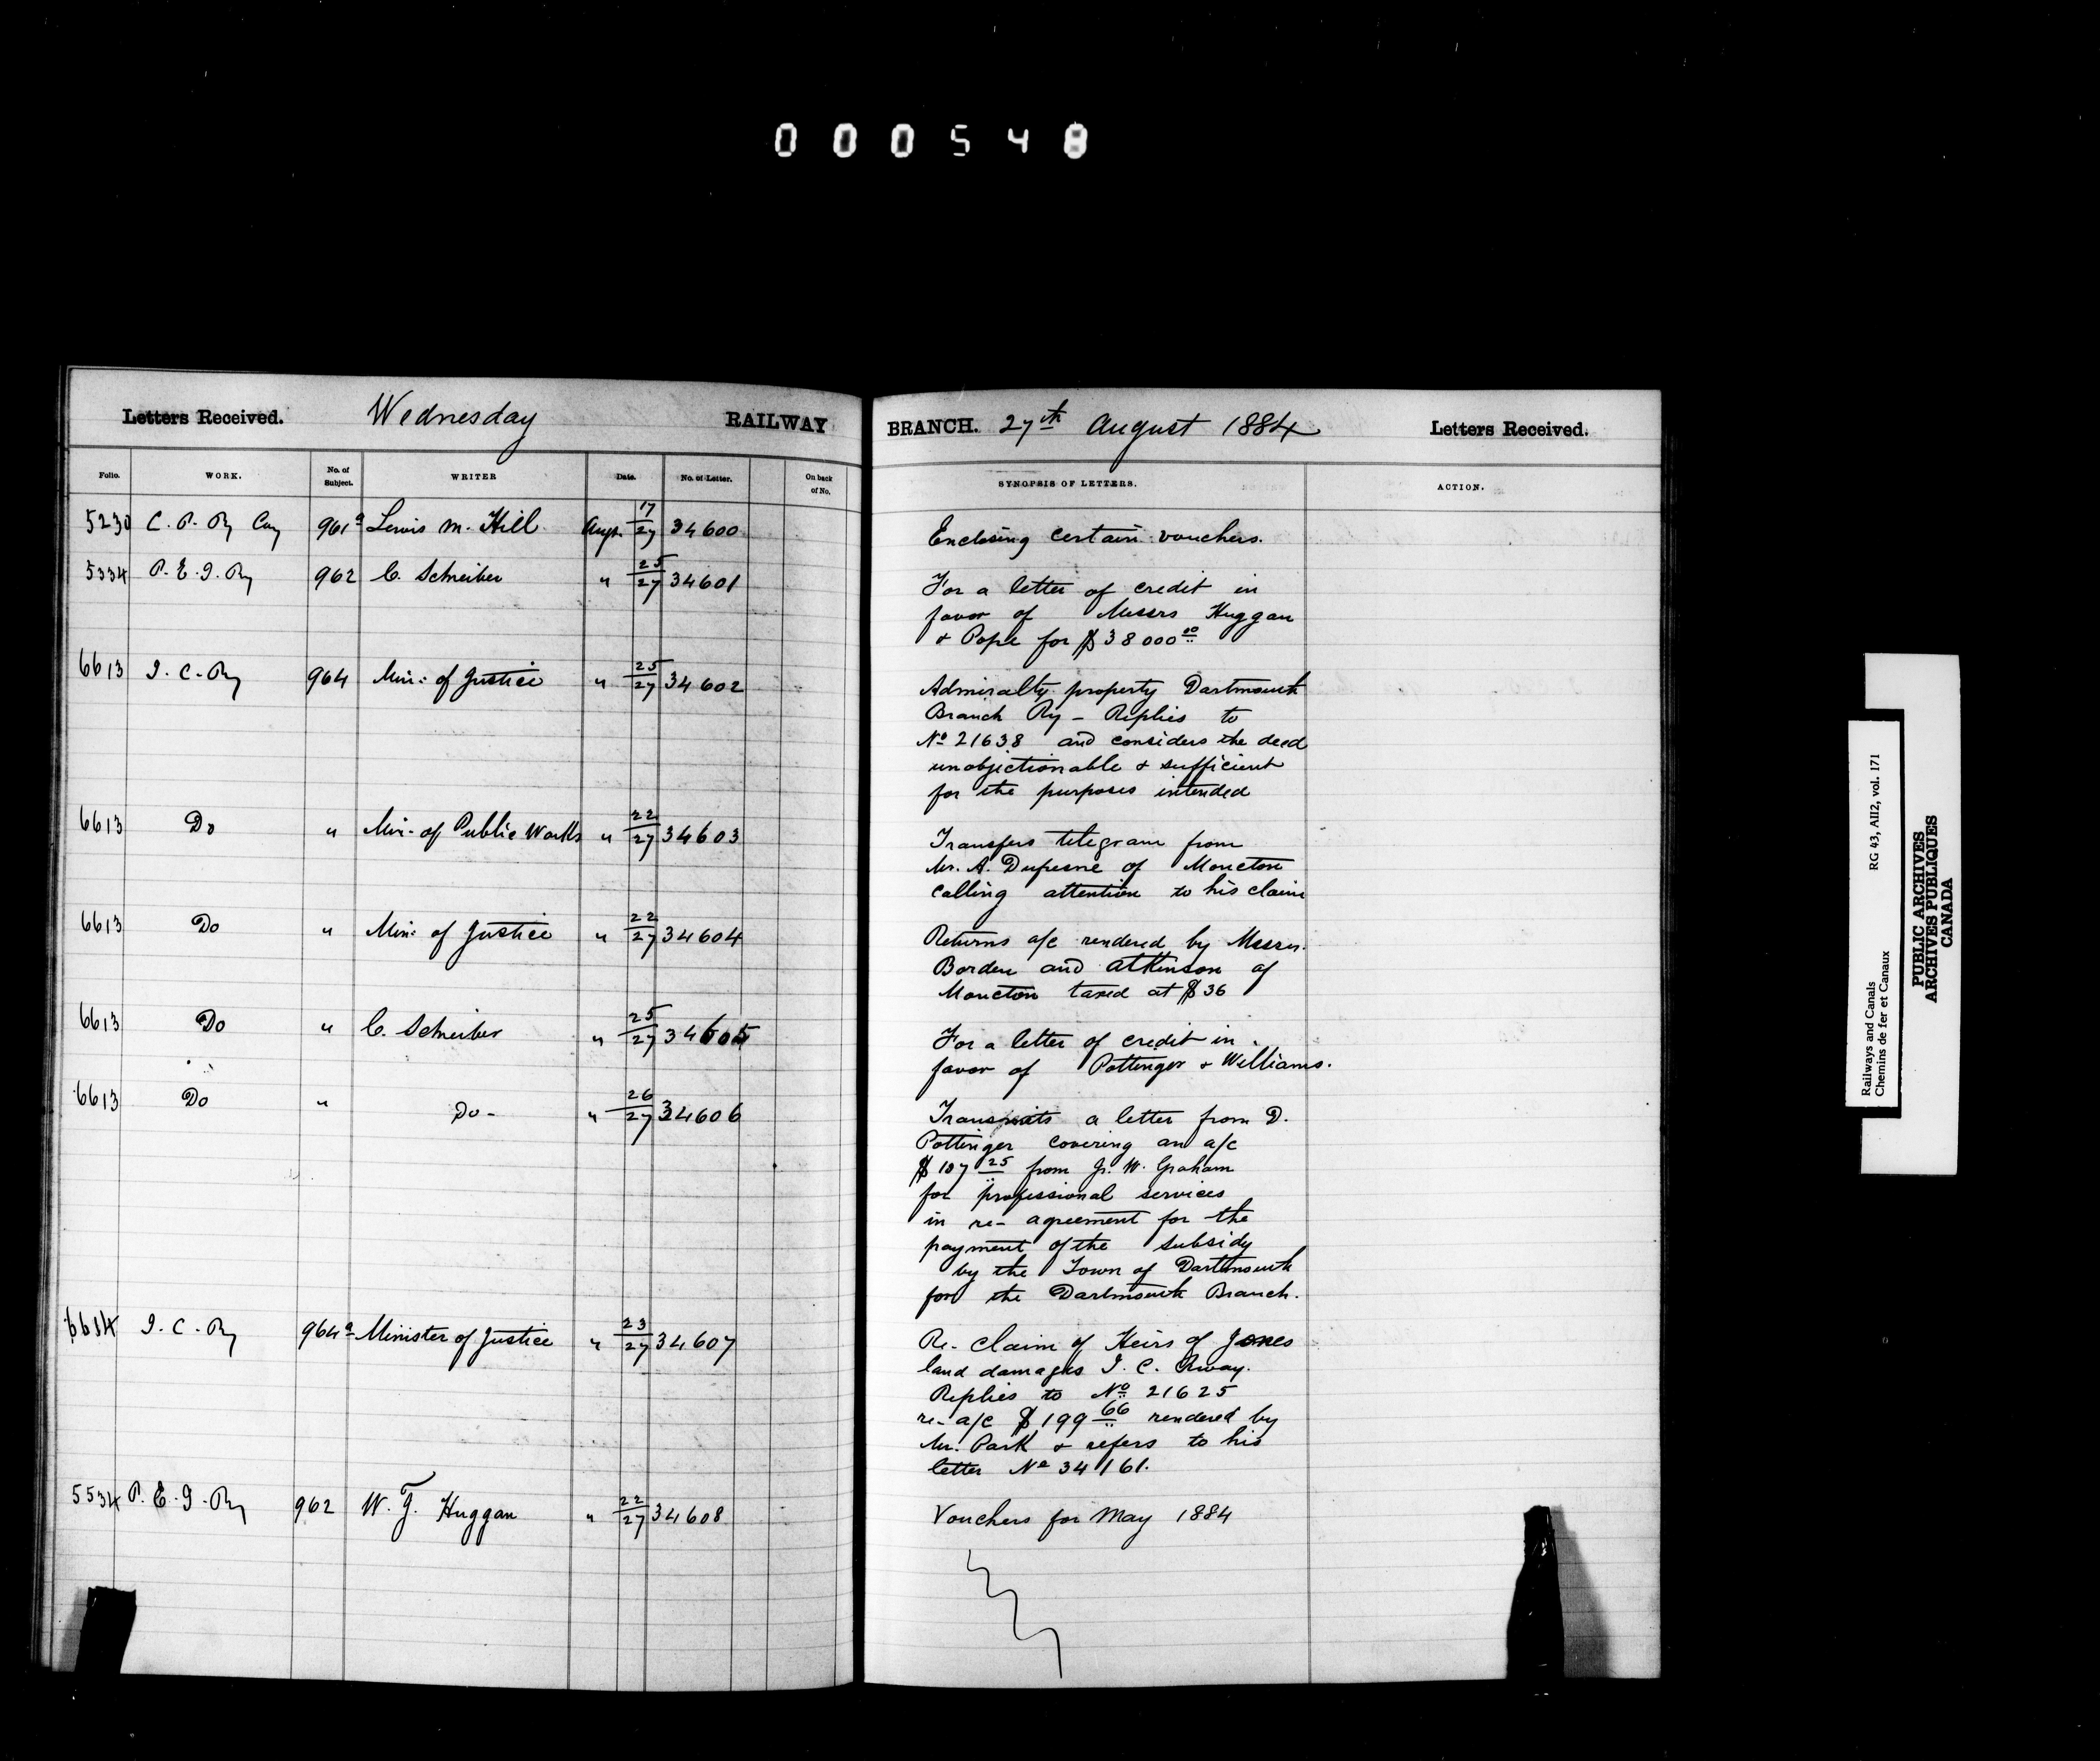 000548
Letters Received. Wednesday RAILWAY
Folio. WORK. No. of Subject. WRITER Date. No. of Letter. On back of No.
5230 C. P. Ry Coy 961a Lewis M. Hill Augt. 17/27 34600
5334 P. E. I. Ry 962 C. Schreiber " 25/27 34601
6613 I. C. Ry 964 Min: of Justice " 25/27 34602
6613 Do " Min- of Public Works " 22/27 34603
6613 Do " Min: of Justice " 22/27 34604
6613 Do " C. Schreiber " 25/27 34605
6613 Do " Do- " 26/27 34606
6614 I. C. Ry 964a Minister of Justice " 23/27 34607
5534 P. E. I. Ry 962 W. T. Huggan " 22/27 34608
BRANCH. 27th August 1884 Letters Received.
SYNOPSIS OF LETTERS. ACTION.
Enclosing certain vouchers.
For a letter of credit in
favor of Messrs Huggan
& Pope for $38000 00
Admiralty property Dartmouth
Branch Ry - Replies to
No 21638 and considers the deed
unobjectionable & sufficient
for the purposes intended
Transfers telegram from
Mr. A. Dufresne of Moncton
calling attention to his claim
Returns a/c rendered by Messrs.
Borden and Atkinson of
Moncton taxed at $36
For a letter of credit in
favor of Pottinger & Williams.
Transmits a letter from D.
Pottinger covering an a/c
$107 25 from J. W. Graham
for professional services
in re- agreement for the
payment of the subsidy
by the Town of Dartmouth
for the Dartmouth Branch.
Re- claim of Heirs of Jones
land damages I. C. Rway.
Replies to No 21625
re- a/c $199 66 rendered by
Mr. Park & refers to his
letter No 34161.
Vouchers for May 1884
Railways and Canals RG 43, AII2, vol. 171
Chemins de fer et Canaux
PUBLIC ARCHIVES
ARCHIVES PUBLIQUES
CANADA